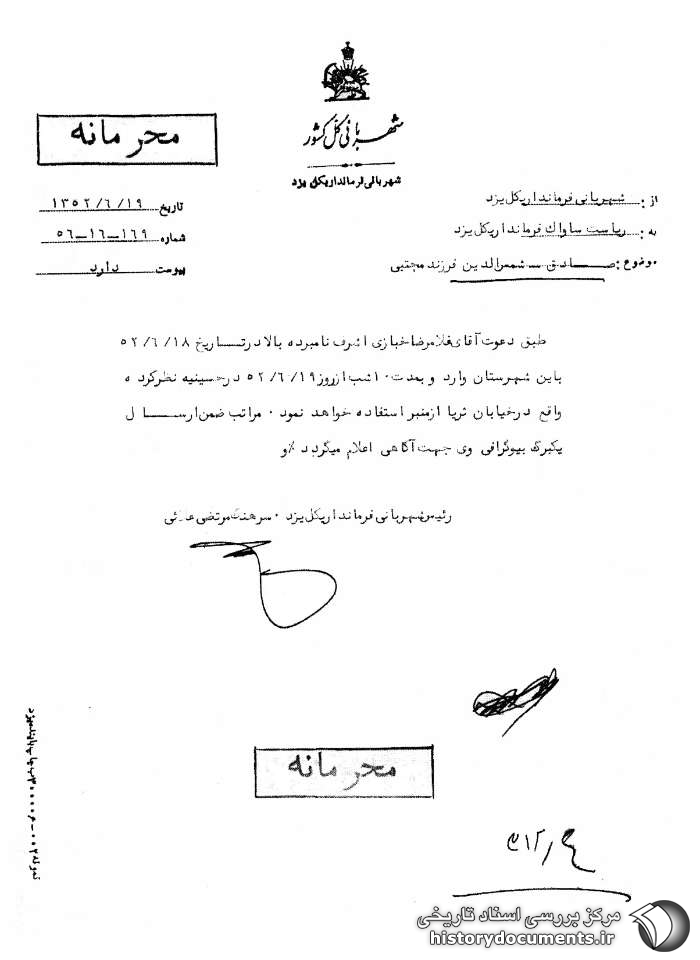 محرمانه
شهربانی کل کشور
شهربانی فرمانداریکل یزد
از : شهربانی فرماندار یکل یزد
به : ریاست ساواك فرماندار یکل یزد
موضوع : صادق - شمس الدین فرزند مجتبی
تاریخ ۱۳۵۲/۶/۱۹
شماره ۱۶۹-۱۶-۵۶
پیوست دارد
طبق دعوت آقای غلامرضا خبازی اشرف نامبرده بالا در تاریخ ۵۲/۶/۱۸
باین شهرستان وارد و بمدت ۱۰ شب از روز ۵۲/۶/۱۹ در حسینیه نظرکرده
واقع در خیابان ثریا از منبر استفاده خواهد نمود . مراتب ضمن ارسال
یکبرگ بیوگرافی وی جهت آگاهی اعلام میگردد %و
رئیس شهربانی فرماندار یکل یزد . سرهنگ مرتضی علائی
محرمانه
مرکز بررسی اسناد تاریخی
historydocuments.ir